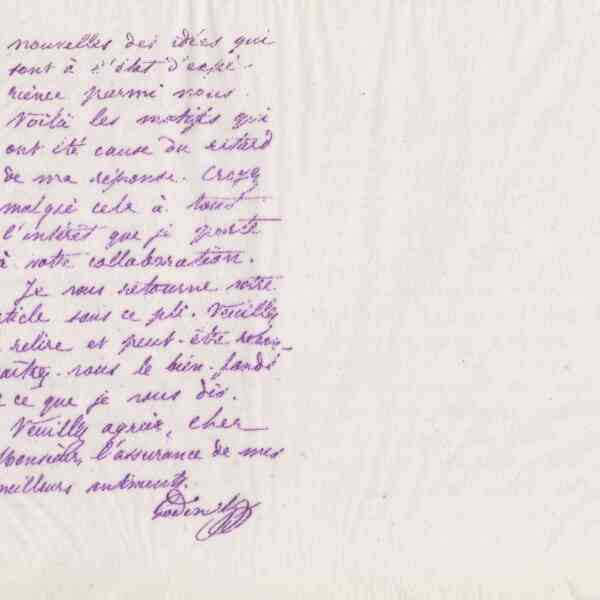 nouvelles des idées qui
sont à l'état d'expé-
rience parmi nous.
Voilà les motifs qui
ont été cause du retard
de ma réponse. Croyez
malgré cela à tout
l'intérêt que je porte
à votre collaboration.
Je vous retourne votre
article sous ce pli. Veuillez
relire et peut-être recon-
naîtrez-vous le bien-fondé
de ce que je vous dis.
Veuillez agréer, cher
Monsieur, l'assurance de mes
meilleurs sentiments.
Godin